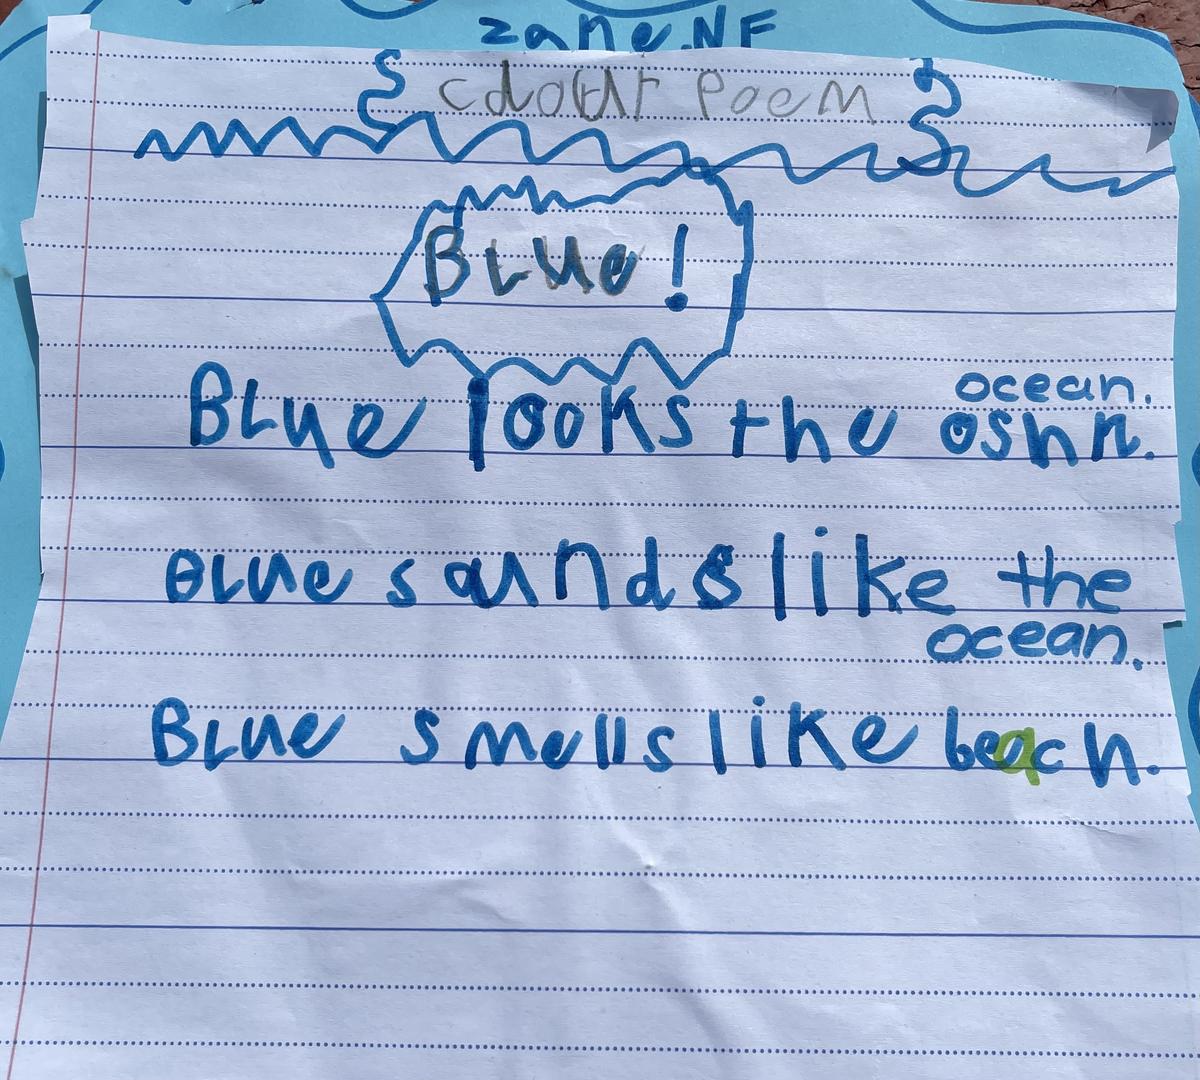 zane.NF
colour Poem
BLue!
BLue looks the oshn.
ocean.
BLue sounds like the
ocean.
BLue smells like beach.